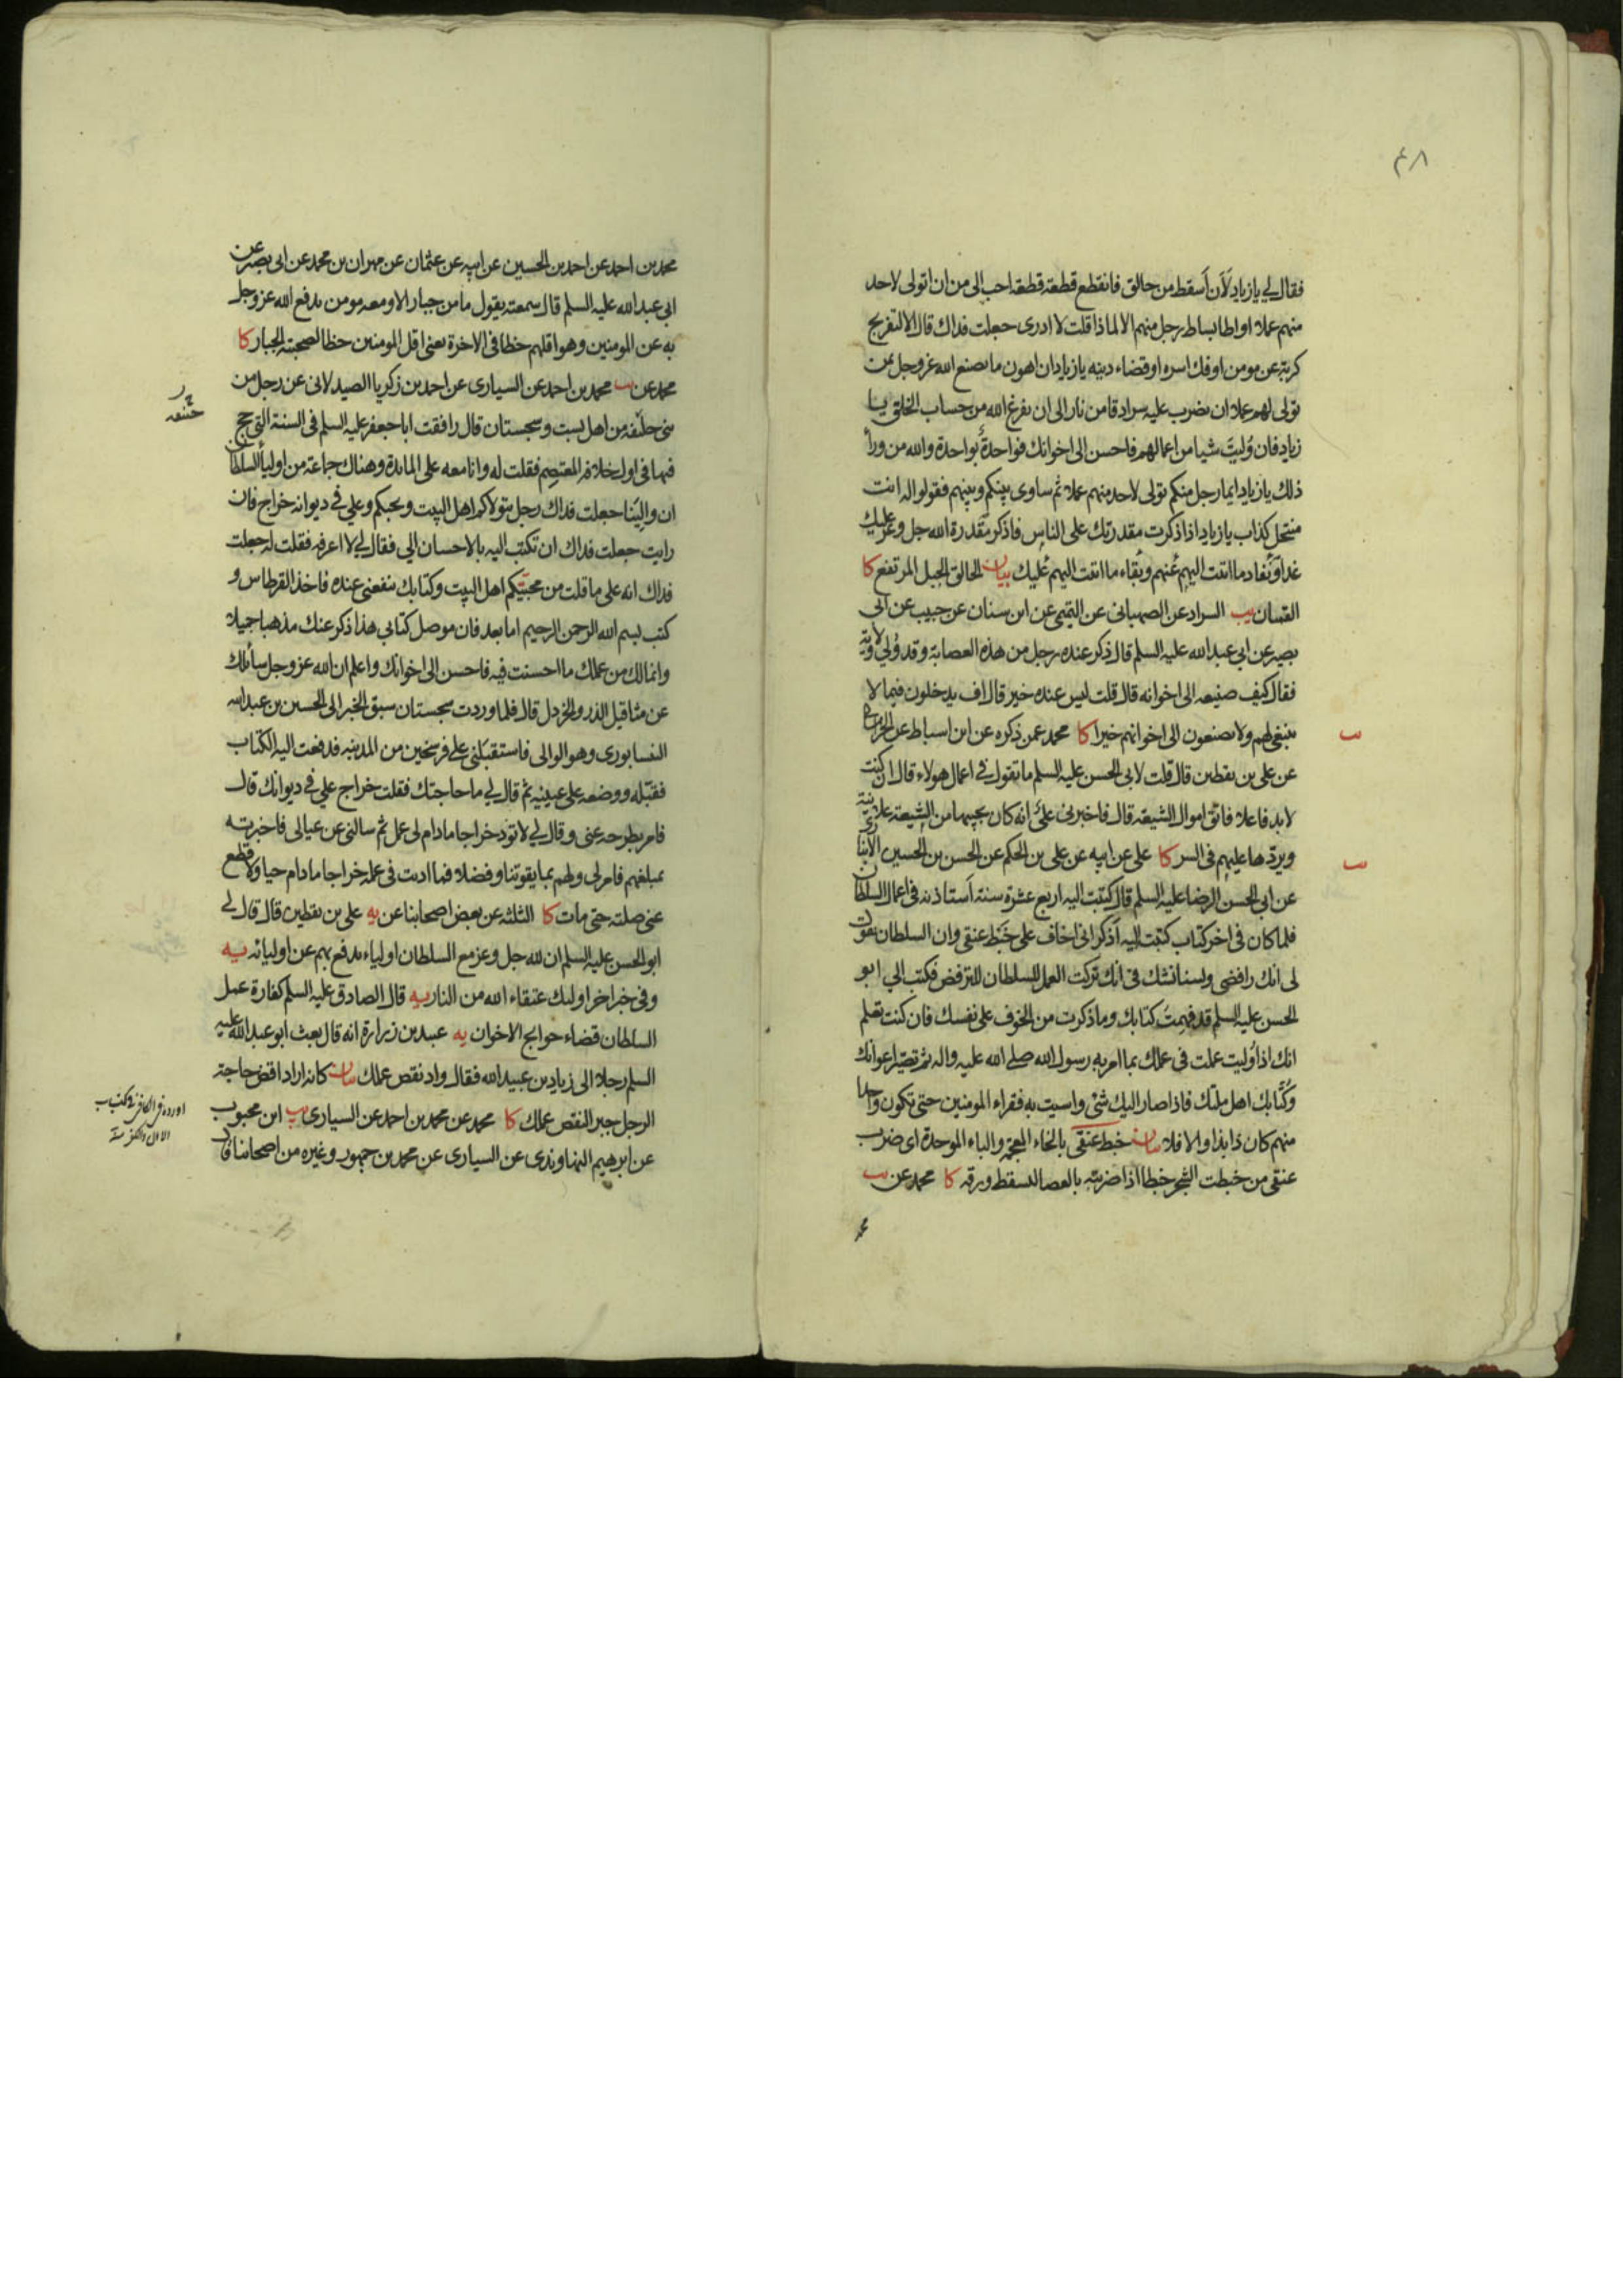 ٤٨
فقال لي يا زياد لَاَن اَسقط من حالق فانقطع قطعة قطعة احب الى من ان اتولى لاحد
منهم عملا او اطا بساط رجل منهم الا لماذا قلت لا ادرى جعلت فداك قال الا لتفريج
كربة عن مومن او فك اسره او قضاء دينه يا زياد ان اهون ما يصنع الله عز وجل بمن
تولى لهم عملا ان يضرب عليه سرادقا من نار الى ان يفرغ الله من حساب الخلق يا
زياد فان وُليتَ شيا من اعمالهم فاحسن الى اخوانك فواحدةٌ بواحدة والله من ورآ
ذلك يا زياد ايما رجل منكم تولى لاحد منهم عملا ثم ساوى بينكم وبينهم فقولوا له انت
منتحل كذاب يا زياد اذا ذكرت مقدرتك على الناس فاذكر مقدرة الله جل وعز عليك
غدا ونَفاد ما اتيت اليهم عَنهم وبقاء ما اتيت اليهم عَليك بيان الحالق الجبل المرتفع كا
القميان يب السراد عن الصهبانى عن التميمي عن ابن سنان عن حبيب عن ابى
بصير عن ابي عبد الله عليه السلم قال ذكر عنده رجل من هذه العصابة وقد وُلي ولاية
فقال كيف صنيعه الى اخوانه قال قلت ليس عنده خير قال اف يدخلون فيما لا
ينبغي لهم ولا يصنعون الى اخوانهم خيرا كا محمد عمن ذكره عن ابن اسباط عن
عن على بن يقطين قال قلت لابى الحسن عليه السلم ما تقول في اعمال هولاء قال ان كنت
لا بد فاعلا فاتق اموال الشيعة قال فاخبرنى علىّ انه كان يجبيها من الشيعة علانية
ويردّها عليهم فى السر كا على عن ابيه عن على بن الحكم عن الحسن بن الحسين الانبارى
عن ابى الحسن الرضا عليه السلم قال كتبت اليه اربع عشرة سنة اَستاذنه فى اعمال السلطان
فلما كان فى اخر كتاب كتبت اليه اَذكر انى اخاف على خَبْط عنقى وان السلطان يقول
لى انك رافضى ولسنا نشك فى انك تركت العمل للسلطان للترفض فكتب الي ابو
الحسن عليه السلم قد فهمتُ كتابك وما ذكرت من الخوف على نفسك فان كنت تعلم
انك اذا وُليت عملت فى عملك بما امر به رسول الله صلى الله عليه واله ثم تصيّر اعوانك
وكُتّابك اهل ملتك فاذا صار اليك شئ واسيت به فقراء المومنين حتى تكون واحدا
منهم كان ذا بذا والا فلا بيان خبط عنقى بالخاء المعجمة والباء الموحدة اى ضرب
عنقى من خبطت الشجر خبطا اذا ضربته بالعصا ليسقط ورقه كا محمد عن يب
محمد
محمد بن احمد عن احمد بن الحسين عن ابيه عن عثمان عن مهران بن محمد عن ابى بصير عن
ابي عبد الله عليه السلم قال سمعته يقول ما من جبار الا ومعه مومن يدفع الله عز وجل
به عن المومنين وهو اقلهم حظا فى الاخرة يعنى اقل المومنين حظا لصحبته الجبار كا
محمد عن يب محمد بن احمد عن السيارى عن احمد بن زكريا الصيدلانى عن رجل من
بنى حنيفه من اهل بست وسجستان قال رافقت ابا جعفر عليه السلم فى السنة التى حج
فيها فى اول خلافة المعتصم فقلت له وانا معه على المائدة وهناك جماعة من اوليآء السلطان
ان والِيَنا جعلت فداك رجل يتولاكم اهل البيت ويحبكم وعلي في ديوانه خراج فان
رايت جعلت فداك ان تكتب اليه بالاحسان الي فقال لي لا اعرفه فقلت له جعلت
فداك انه على ما قلت من محبيّكم اهل البيت وكتابك ينفعنى عنده فاخذ القرطاس و
كتب بسم الله الرحمن الرحيم اما بعد فان موصل كتابي هذا ذكر عنك مذهبا جميلا
وانما لك من عملك ما احسنت فيه فاحسن الى اخوانك واعلم ان الله عز وجل سائلك
عن مثاقيل الذر والخردل قال فلما وردت سجستان سبق الخبر الى الحسين بن عبد الله
النيسابورى وهو الوالى فاستقبلنى على فرسخين من المدينه فدفعت اليه الكتاب
فقبّله ووضعه على عينيه ثم قال لي ما حاجتك فقلت خراج علي في ديوانك قال
فامر بطرحه عنى وقال لي لا تؤد خراجا ما دام لى عمل ثم سالنى عن عيالى فاخبرته
بمبلغهم فامر لى ولهم بما يقوتنا وفضلا فما اديت فى عمله خراجا ما دام حيا ولا قطع
عنى صلته حتى مات كا الثلثه عن بعض اصحابنا عن يه على بن يقطين قال قال لي
ابو الحسن عليه السلم ان لله جل وعز مع السلطان اولياء يدفع بهم عن اوليائه يه
وفى خبر اخر اولئك عتقاء الله من النار يه قال الصادق عليه السلم كفارة عمل
السلطان قضاء حوايج الاخوان يه عبيد بن زرارة انه قال بعث ابو عبد الله عليه
السلم رجلا الى زياد بن عبيد الله فقال واد نقص عملك بيان كانه اراد اقض حاجة
الرجل جبر النقص عملك كا محمد عن محمد بن احمد عن السيارى يب ابن محبوب
عن ابرهيم النهاوندى عن السيارى عن محمد بن جمهور وغيره من اصحابنا قال